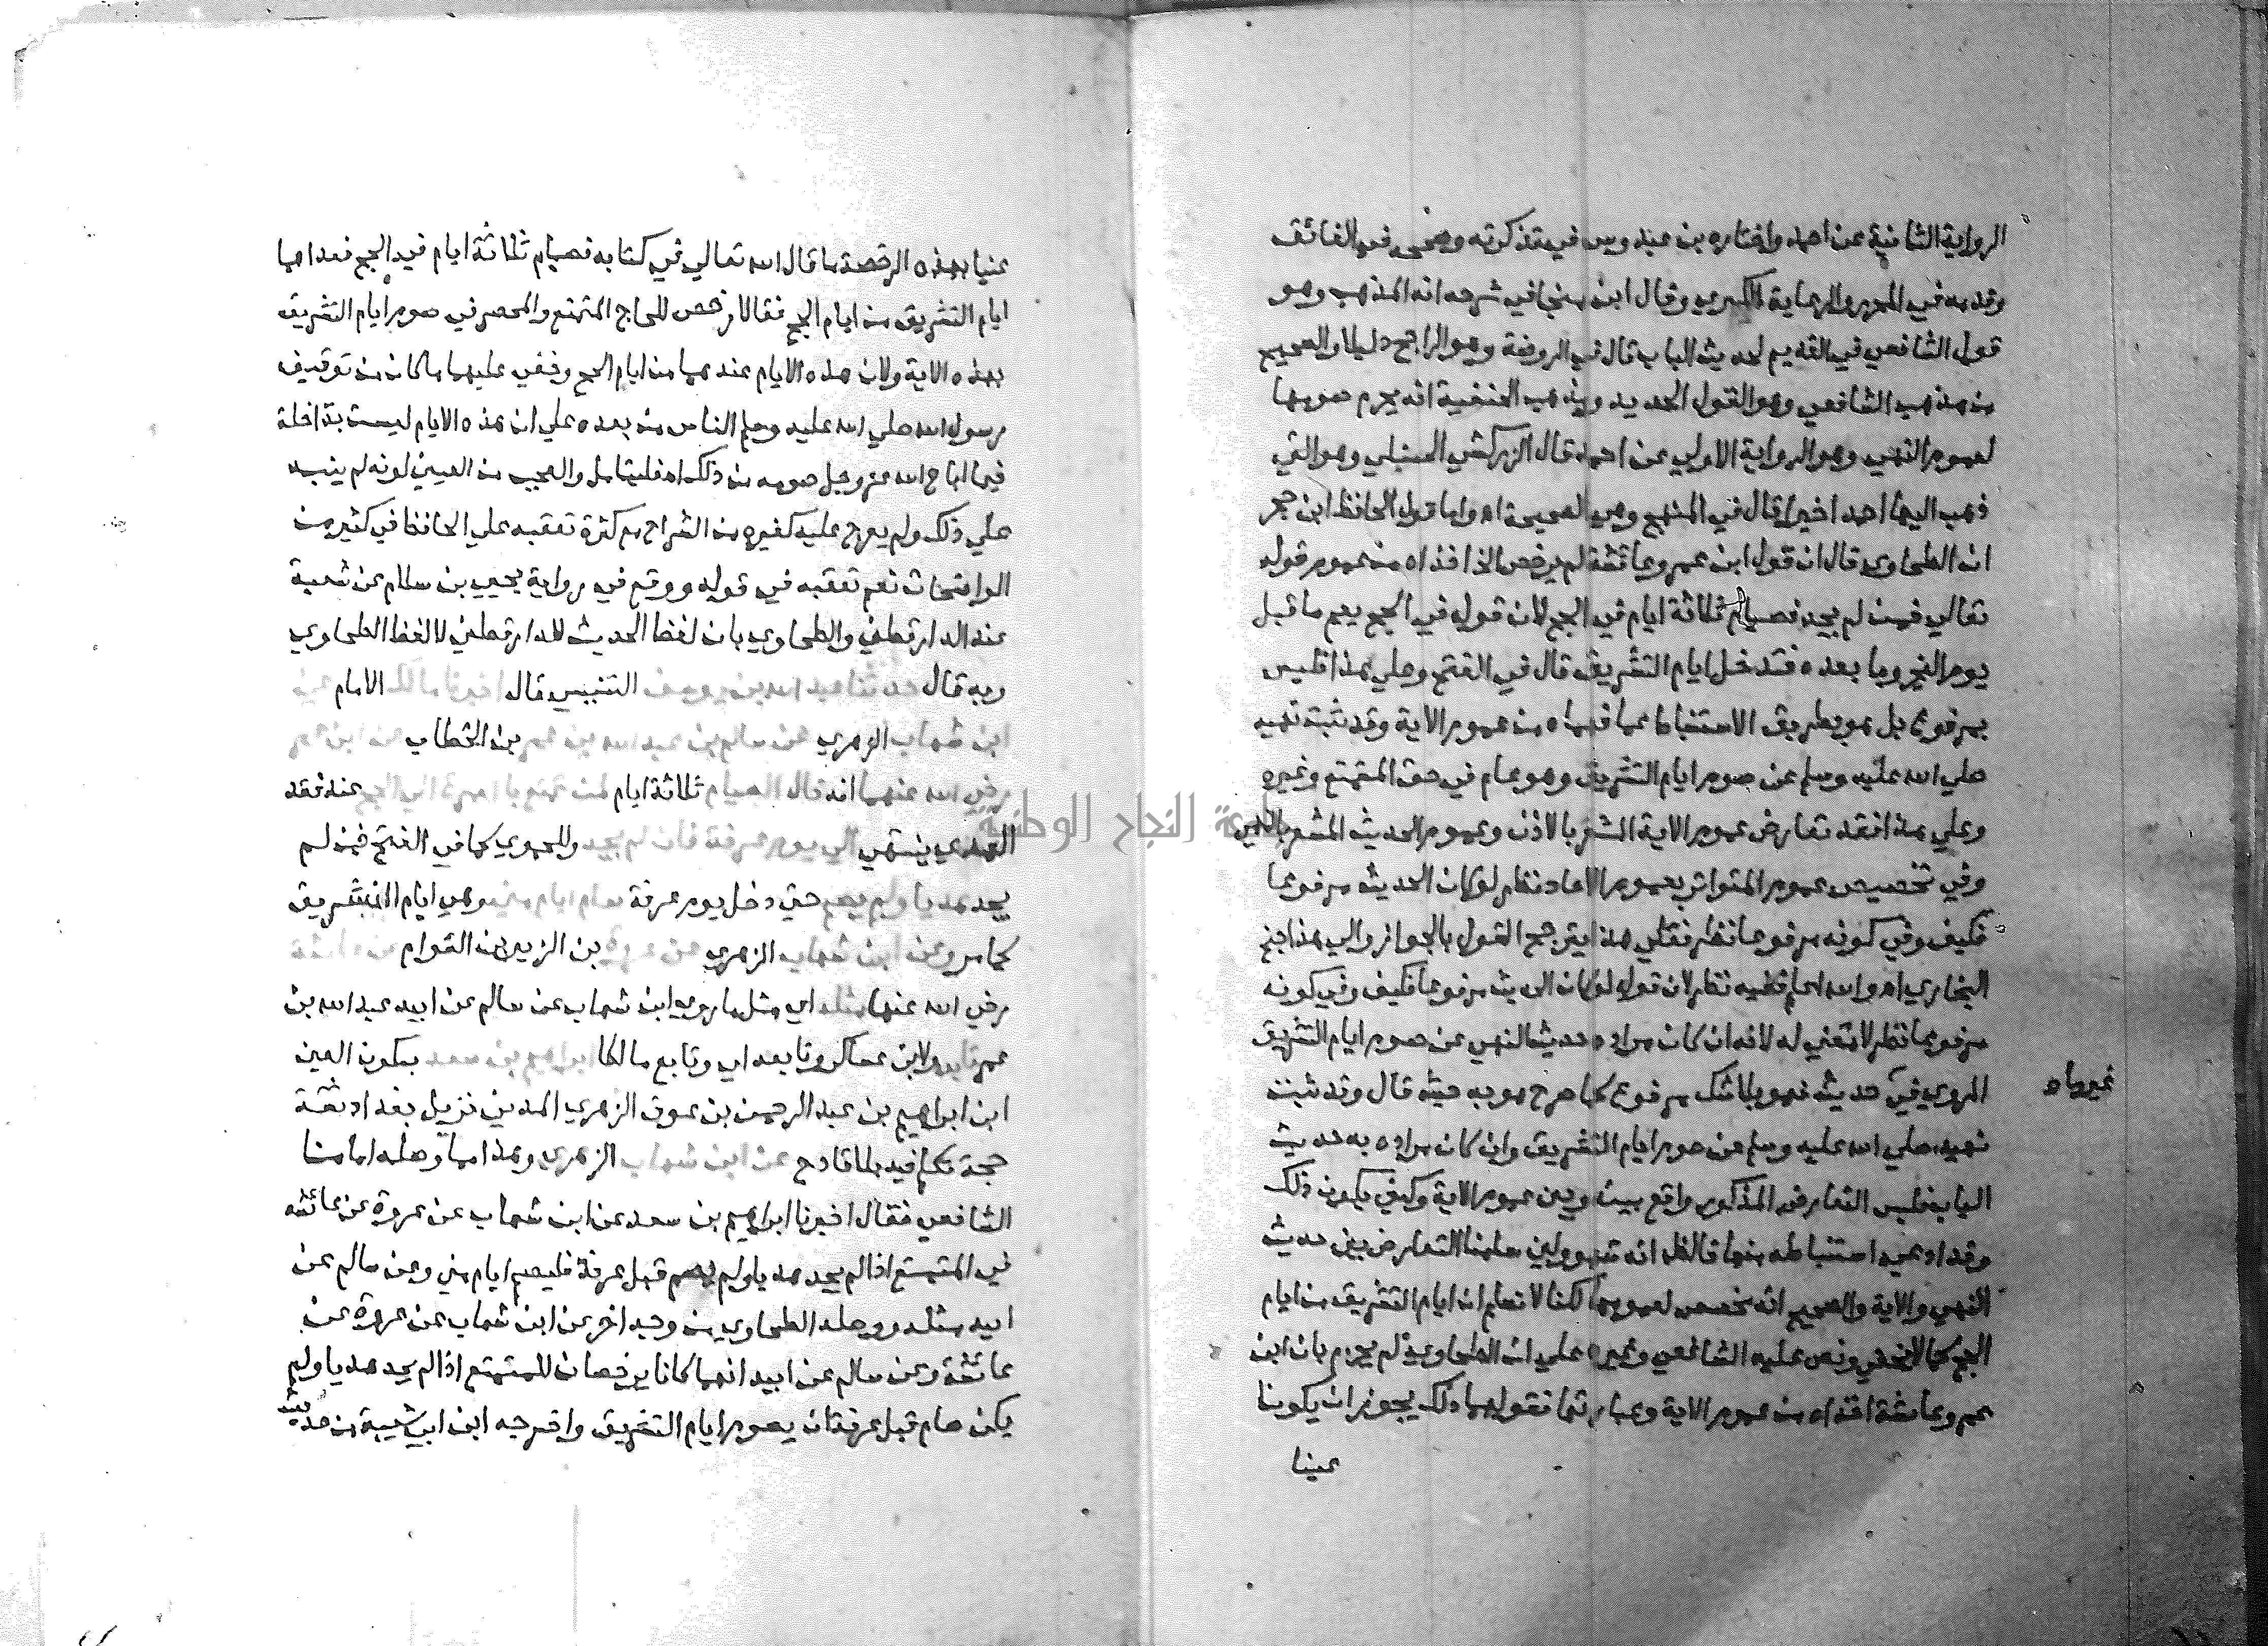 الرواية الثانية عن احمد واختاره بن عبدوس في تذكرته وصححه في الفائق
وقدمه في المحرر والرعاية الكبري وقال ابن منجا في شرحه انه المذهب وهو
قول الشافعي في القديم لحديث الباب قال في الروضة وهو الراجح دليلا والصحيح
من مذهب الشافعي وهو القول الجديد ومذهب الحنفية انه يحرم صومها
لعموم النهي وهو الرواية الاولي عن احمد قال الزركشي الحنبلي وهو التي
ذهب اليها احمد اخيرا قال في المنهج وهي الصحيحة اه واما قول الحافظ ابن حجر
ان الطحاوي قال ان قول ابن عمر وعائشة لم يرخص الخ اخذاه من عموم قوله
تعالي فمن لم يجد فصيام ثلاثة ايام في الحج لان قوله في الحج يعم ما قبل
يوم النحر وما بعده فتدخل ايام التشريق قال في الفتح وعلي هذا فليس
بمرفوع بل هو بطريق الاستنباط عما فهماه من عموم الاية وقد ثبت نهيه
صلي الله عليه وسلم عن صوم ايام التشريق وهو عام في حق المتمتع وغيره
وعلي هذا فقد تعارض عموم الاية المشعر بالاذن وعموم الحديث المشعر بالنهي
وفي تخصيص عموم المتواتر بعموم الاحاد نظر لو كان الحديث مرفوعا
فكيف وفي كونه مرفوعا نظر فعلي هذا يترجح القول بالجواز والي هذا جنح
البخاري اه والله اعلم ففيه نظر لان قوله لو كان الحديث مرفوعا فكيف وفي كونه
مرفوعا نظر لا معني له لانه ان كان مراده حديث النهي عن صوم ايام التشريق
المروي في حديث فهو بلا شك مرفوع كما صرح هو به حيث قال وقد ثبت
نهيه صلي الله عليه وسلم عن صوم ايام التشريق وان كان مراده به حديث
الباب فليس التعارض المذكور واقع بينه وبين عموم الاية وكيف يكون ذلك
وقد ادعي استنباطه منها فالظاهر انه سهو ولئن سلمنا التعارض بين حديث
النهي والاية والصحيح انه مخصص لعمومها لكنا لا نعلم ان ايام التشريق من ايام
الحج كما لا يخفي ونص عليه الشافعي وغيره علي ان الطحاوي لم يجزم بان ابن
عمر وعائشة اخذاه من عموم الاية وعبارته فقولهما ذلك يجوز ان يكونا
عنيا
عنيا بهذه الرخصة ما قال الله تعالي في كتابه فصيام ثلاثة ايام في الحج فعداها
ايام التشريق من ايام الحج فقالا رخص للحاج المتمتع والمحصر في صوم ايام التشريق
بهذه الاية ولان هذه الايام عندهما من ايام الحج وخفي عليهما ما كان من توقيف
رسول الله صلي الله عليه وسلم الناس من بعده علي ان هذه الايام ليست بداخلة
فيما اباح الله عز وجل صومه من ذلك اه فليتامل والعجب من العيني لونه لم ينبه
علي ذلك ولم يعرج عليه كغيره من الشراح مع كثرة تعقبه علي الحافظ في كثير من
الواضحات نعم تعقبه في قوله ووقع في رواية يحيي بن سلام عن شعبة
عند الدارقطني والطحاوي بان لفظ الحديث للدارقطني لا لفظ الطحاوي
وبه قال حدثنا عبد الله بن يوسف التنيسي قال اخبرنا مالك الامام عن
ابن شهاب الزهري عن سالم بن عبد الله بن عمر بن الخطاب عن ابن عمر
رضي الله عنهما انه قال الصيام ثلاثة ايام لمن تمتع بالعمرة الي الحج عند فقد
الهدي ينتهي الي يوم عرفة فان لم يجد وللحموي كما في الفتح فمن لم
يجد هديا ولم يصم حتي دخل يوم عرفة صام ايام مني وهي ايام التشريق
كما مر وعن ابن شهاب الزهري عن عروة بن الزبير بن العوام عن عائشة
رضي الله عنها مثله اي مثل ما روي ابن شهاب عن سالم عن ابيه عبد الله بن
عمر تابعه ولابن عساكر وتابعه اي وتابع مالكا ابراهيم بن سعد بسكون العين
ابن ابراهيم بن عبد الرحمن بن عوف الزهري المدني نزيل بغداد ثقة
حجة تكلم فيه بلا قادح عن ابن شهاب الزهري وهذا مما وصله امامنا
الشافعي فقال اخبرنا ابراهيم بن سعد عن ابن شهاب عن عروة عن عائشة
في المتمتع اذا لم يجد هديا ولم يصم قبل عرفة فليصم ايام مني وعن سالم عن
ابيه مثله ووصله الطحاوي من وجه اخر عن ابن شهاب عن عروة عن
عائشة وعن سالم عن ابيه انهما كانا يرخصان للمتمتع اذا لم يجد هديا ولم
يكن صام قبل عرفة ان يصوم ايام التشريق واخرجه ابن ابي شيبة من حديث